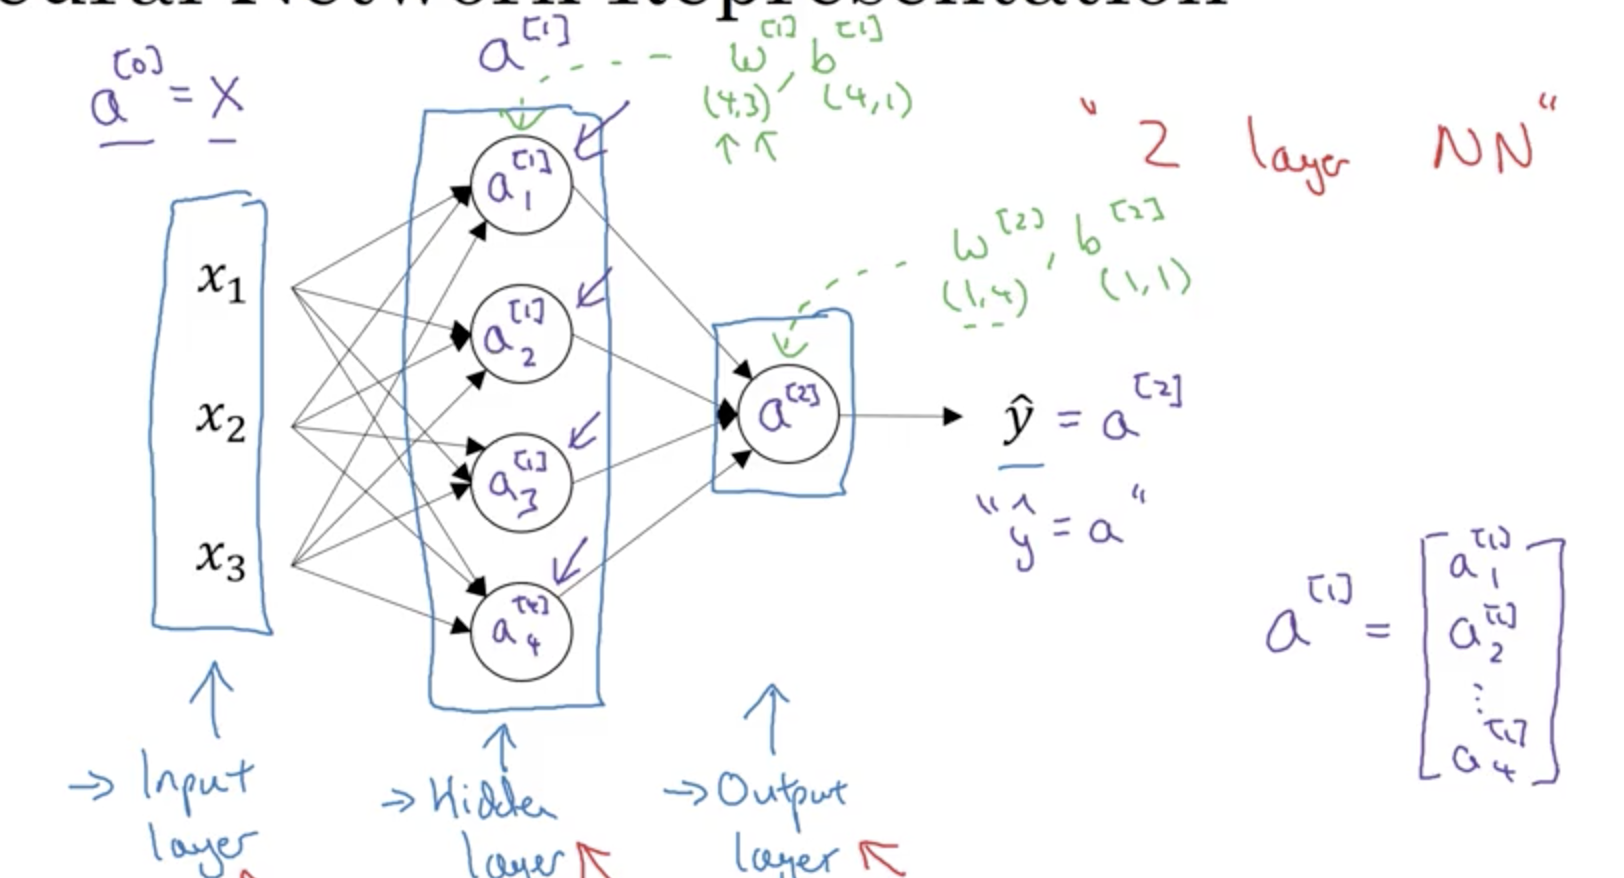 Neural Network Representation
a^[0] = X
a^[1]
w^[1], b^[1]
(4,3) (4,1)
"2 layer NN"
x_1
x_2
x_3
a_1^[1]
a_2^[1]
a_3^[1]
a_4^[4]
w^[2], b^[2]
(1,4) (1,1)
a^[2]
ŷ = a^[2]
"ŷ = a"
a^[1] = [a_1^[1]
a_2^[1]
⋮
a_4^[1]]
→ Input
layer
→ Hidden
layer
→ Output
layer